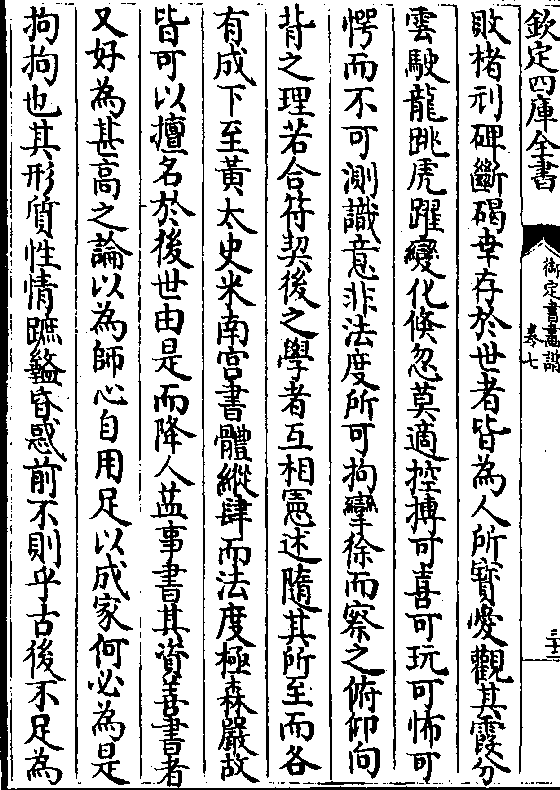 欽定四庫全書
御定書畫譜
卷七
三十二
敗楮刓碑斷碣幸存於世者皆為人所寳愛觀其霞分
雲駛龍跳虎躍變化倏忽莫適控摶可喜可玩可怖可
愕而不可測識意非法度所可拘攣徐而察之俯仰向
背之理若合符契後之學者互相憲述隨其所至而各
有成下至黃太史米南宮書體縱肆而法度極森嚴故
皆可以擅名於後世由是而降人葢事書其資善書者
又好為甚高之論以為師心自用足以成家何必為是
拘拘也其形質性情蹠盭昏惑前不則乎古後不足為